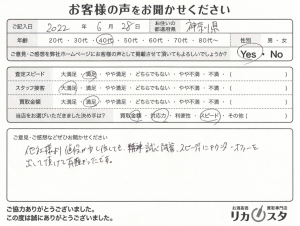 お客様の声をお聞かせください
ご記入日 2022年 6月 28日 お住いの都道府県 神奈川県
年齢 20代・30代・40代・50代・60代・70代・80代〜 性別 男・女
ご意見・ご感想を弊社ホームページにお客様の声として掲載させて頂いてもよろしいでしょうか? Yes・No
査定スピード 大満足・満足・やや満足・どちらでもない・やや不満・不満 ( )
スタッフ接客 大満足・満足・やや満足・どちらでもない・やや不満・不満 ( )
買取金額 大満足・満足・やや満足・どちらでもない・やや不満・不満 ( )
当店をお選びいただきました決め手は? 買取金額・対応力・利便性・スピード・その他( )
ご意見・ご感想などぜひお聞かせください
他社様より値段が少し低くても、精神誠に誠実、スピーディにアンダー
出して頂けて有難かったです。
ご協力ありがとうございました。
この度は誠にありがとうございました。
お酒高価買取専門店
リカスタ